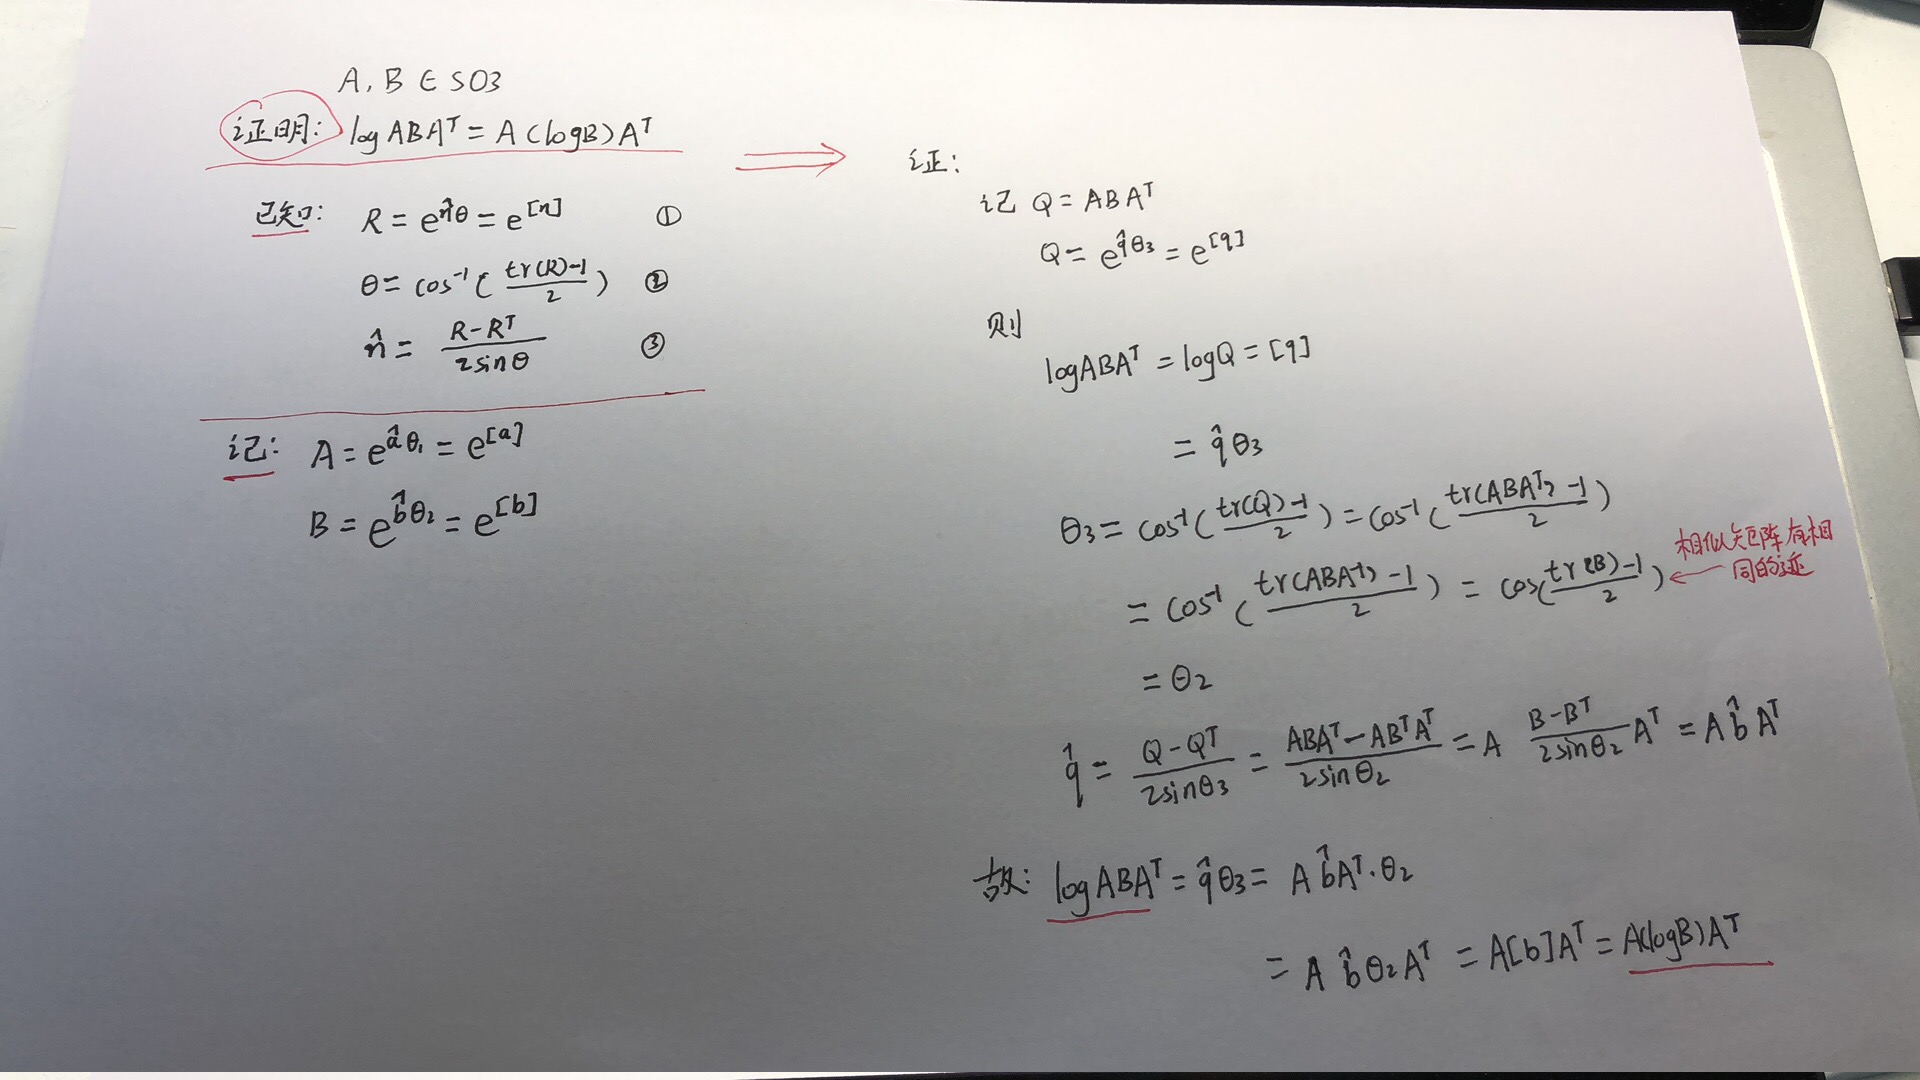 A, B ∈ SO3
证明: log ABAᵀ = A (logB) Aᵀ
已知: R = e^{n̂θ} = e^{[n]} ①
θ = cos⁻¹( (tr(R)-1)/2 ) ②
n̂ = (R-Rᵀ)/(2sinθ) ③
记: A = e^{âθ₁} = e^{[a]}
B = e^{b̂θ₂} = e^{[b]}
证:
记 Q = ABAᵀ
Q = e^{q̂θ₃} = e^{[q]}
则
logABAᵀ = logQ = [q]
= q̂θ₃
θ₃ = cos⁻¹( (tr(Q)-1)/2 ) = cos⁻¹( (tr(ABAᵀ)-1)/2 )
= cos⁻¹( (tr(ABA⁻¹)-1)/2 ) = cos( (tr(B)-1)/2 ) ← 相似矩阵有相
同的迹
= θ₂
q̂ = (Q-Qᵀ)/(2sinθ₃) = (ABAᵀ-ABᵀAᵀ)/(2sinθ₂) = A (B-Bᵀ)/(2sinθ₂) Aᵀ = A b̂ Aᵀ
故: logABAᵀ = q̂θ₃ = A b̂Aᵀ·θ₂
= A b̂θ₂Aᵀ = A[b]Aᵀ = A(logB)Aᵀ